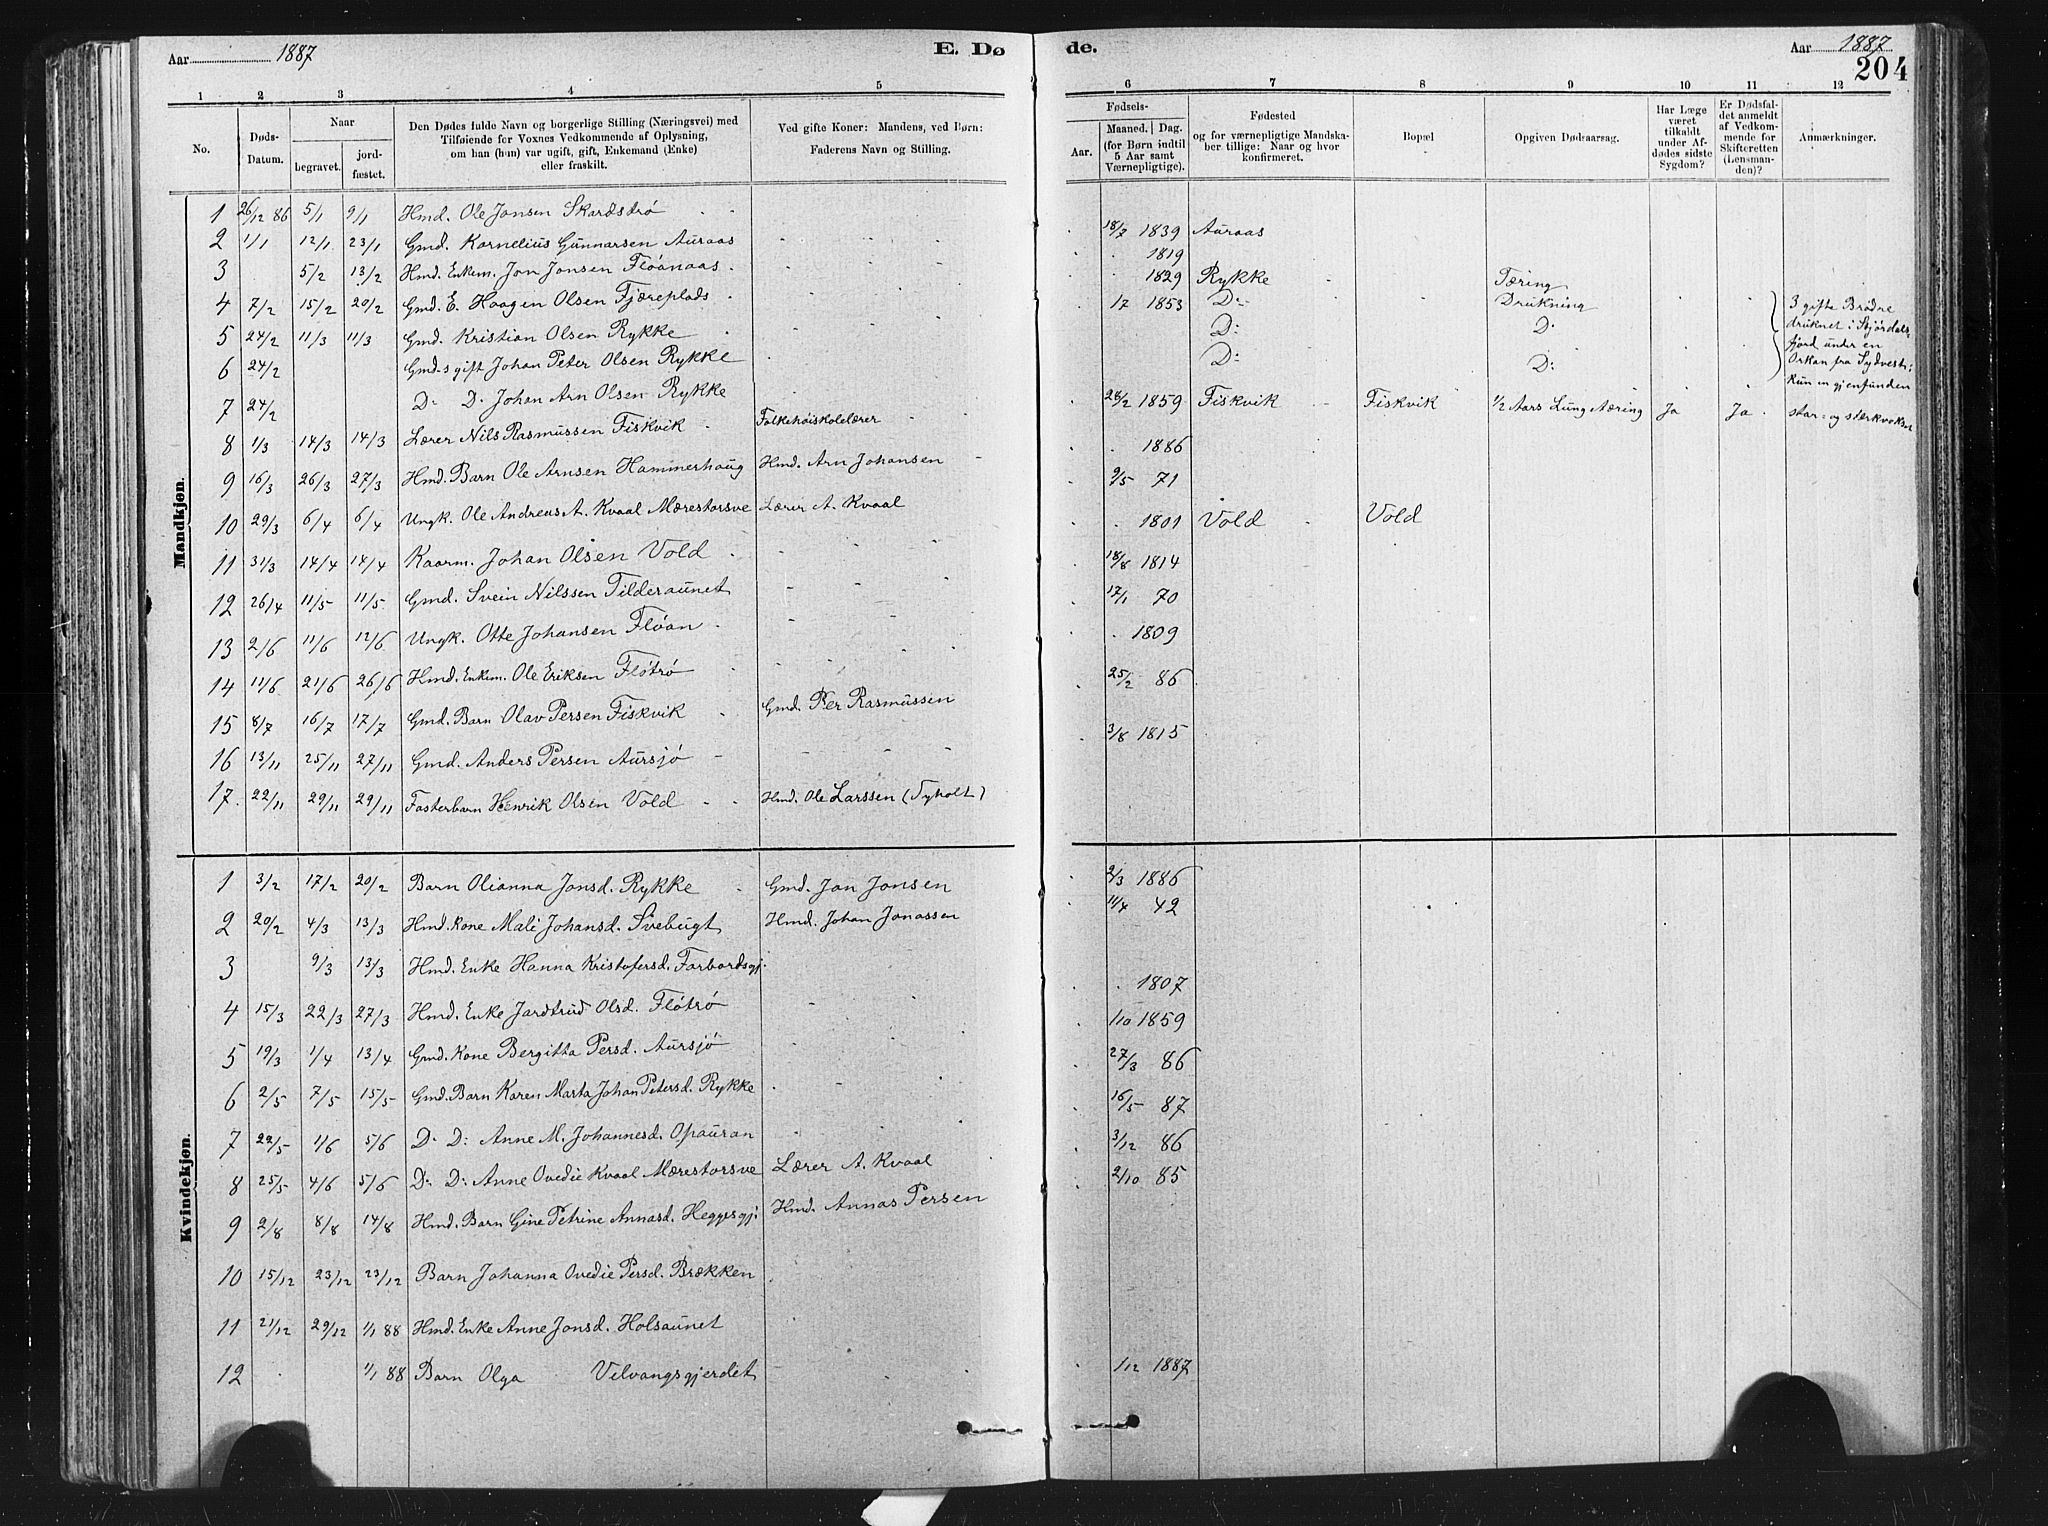 Aar 1887 E. Dø
1 2 3 4 5
No. Døds-Datum. Naar begravet. jordfæstet. Den Dødes fulde Navn og borgerlige Stilling (Næringsvei) med Tilføiende for Voxnes Vedkommende af Oplysning, om han (hun) var ugift, gift, Enkemand (Enke) eller fraskilt. Ved gifte Koner: Mandens, ved Børn: Faderens Navn og Stilling.
Mandkjøn.
1 26/12 86 5/1 9/1 Hmd. Ole Jonsen Skardstrø
2 1/1 12/1 23/1 Gmd. Kornelius Gunnarsen Auraas
3 5/2 13/2 Hmd. Enkem. Jon Jonsen Fløanaas
4 7/2 15/2 20/2 Gmd. E. Haagen Olsen Fjæreplads
5 24/2 11/3 11/3 Gmd. Kristian Olsen Rykke
6 24/2 Gmd-s gift Johan Peter Olsen Rykke
7 24/2 D: D: Johan Arn Olsen Rykke
8 1/3 14/3 14/3 Lærer Nils Rasmussen Fiskvik Folkehøiskolelærer
9 16/3 26/3 27/3 Hmd. Barn Ole Arnsen Hammerhaug Hmd. Arn Johansen
10 29/3 6/4 6/4 Ungk. Ole Andreas A. Kvaal Mærestorsve Lærer A. Kvaal
11 31/3 14/4 14/4 Kaarm. Johan Olsen Vold
12 26/4 11/5 11/5 Gmd. Svein Nilssen Tilderaunet
13 2/6 11/6 12/6 Ungk. Otte Johansen Fløan
14 11/6 21/6 26/6 Hmd. Enkem. Ole Eriksen Fløtrø
15 8/7 16/7 17/7 Gmd. Barn Olav Persen Fiskvik Gmd. Per Rasmussen
16 13/11 25/11 27/11 Gmd. Anders Persen Aursjø
17. 22/11 29/11 29/11 Fosterbarn Henrik Olsen Vold Hmd. Ole Larssen (Tyholt)
Kvindekjøn.
1 3/2 17/2 20/2 Barn Olianna Jonsd. Rykke Gmd. Jon Jonsen
2 20/2 4/3 13/3 Hmd. Kone Mali Johansd. Svebugt Hmd. Johan Jonassen
3 9/3 13/3 Hmd. Enke Hanna Kristofersd. Forbordsgj.
4 15/3 22/3 27/3 Hmd. Enke Jardtrud Olsd. Fløtrø
5 19/3 1/4 13/4 Gmd. Kone Bergitta Persd. Aursjø
6 2/5 7/5 15/5 Gmd. Barn Karen Marta Johan Petersd. Rykke
7 22/5 1/6 5/6 D: D: Anne M. Johannesd. Opauran
8 25/5 4/6 5/6 D: D: Anne Ovedie Kvaal Mærestorsve Lærer A. Kvaal
9 2/8 8/8 14/8 Hmd. Barn Gine Petrine Annasd. Heggesgj: Hmd. Annas Persen
10 15/12 23/12 23/12 Barn Johanna Ovedie Persd. Brækken
11 21/12 29/12 1/1 88 Hmd. Enke Anne Jonsd. Holsaunet
12 1/1 88 Barn Olga Velvangsgjerdet
de. Aar 1887
204
6 7 8 9 10 11 12
Fødsels- Aar. Maaned. Dag. (for Børn indtil 5 Aar samt Værnepligtige). Fødested og for værnepligtige Mandskaber tillige: Naar og hvor konfirmeret. Bopæl Opgiven Dødsaarsag. Har Læge været tilkaldt under Afdødes sidste Sygdom? Er Dødsfaldet anmeldt af Vedkommende for Skifteretten (Lensmanden)? Anmærkninger.
18/7 1839 Auraas
1819
1829 Rykke Tæring
17 1853 D: Drukning 3 gifte Brødre
D: D: druknet i Stjørdals
fjord under en
D: D: Orkan fra Sydvest:
Kun en gjenfunden
28/2 1859 Fiskvik Fiskvik 1/2 Aars Lungetæring Ja Ja stor- og stærkvoksen
1886
9/5 71
1801 Vold Vold
18/8 1814
17/1 70
1809
25/2 86
3/8 1815
2/3 1886
11/4 42
1807
1/10 1859
27/3 86
16/5 87
3/12 86
2/10 85
1/12 1887